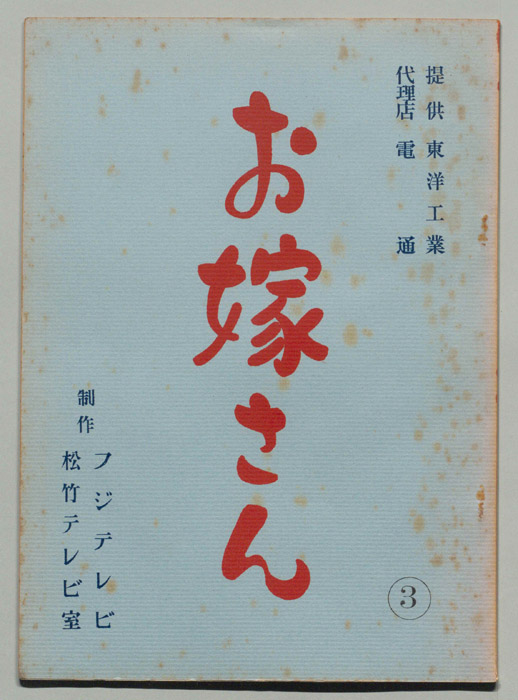 提供 東洋工業
代理店 電通
お嫁さん
③
制作
フジテレビ
松竹テレビ室